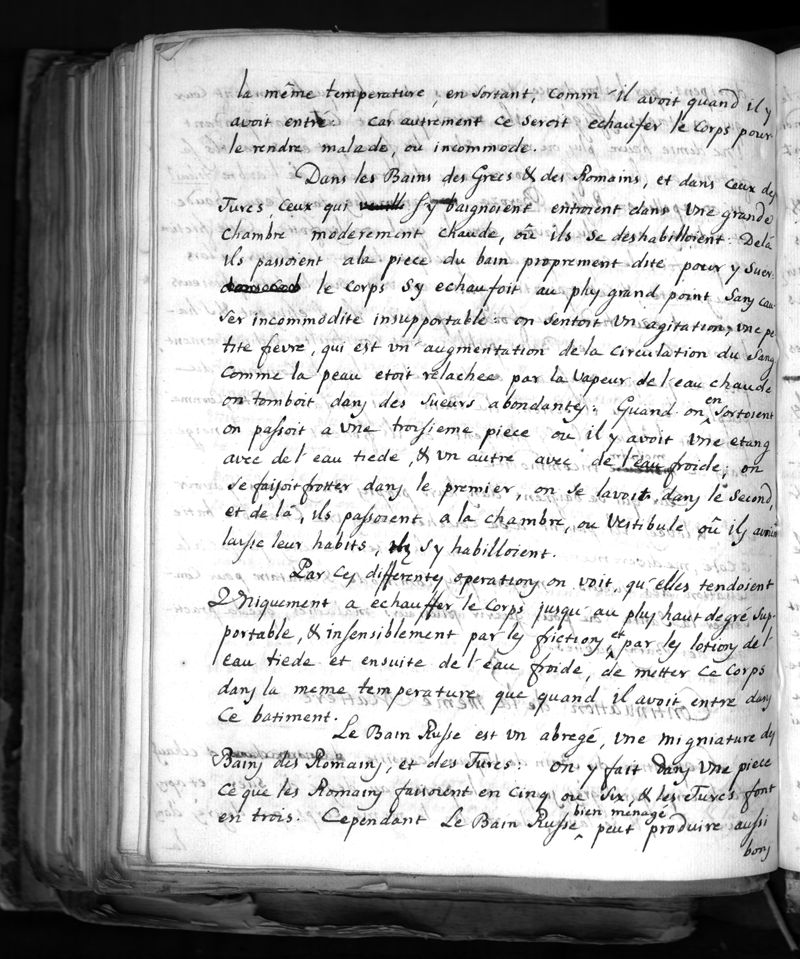 la même temperature, en sortant, comm' il avoit quand il y
avoit entré. car autrement ce seroit echaufer le corps pour
le rendre malade, ou incommode.
Dans les Bains des Grecs & des Romains, et dans ceux des
Turcs, ceux qui s'y baignoient entroient dans une grande
chambre moderement chaude, où ils se deshabilloient. Delà
ils passoient ala piece du bain proprement dite pour y suer.
le corps s'y echaufoit au plus grand point sans cau-
ser incommodite insupportable: on sentoit un agitation, une pe
tite fievre, qui est un' augmentation de la circulation du sang
Comme la peau etoit relachee par la vapeur de l'eau chaude
on tomboit dans des sueurs abondantes: Quand on en sortoient
on passoit a une troisieme piece ou il y avoit une etang
avec de l'eau tiede, & un autre avec de l'eau froide; on
se faisoit frotter dans le premier, on se lavoit dans le second,
et de là, ils passoient a la chambre, ou vestibule où ils avoient
laisse leur habits, s'y habilloient.
Par ces differentes operations on voit, qu'elles tendoient
Uniquement a echauffer le corps jusqu' au plus haut degré sup-
portable, & insensiblement par les frictions et par les lotions de l'
eau tiede et ensuite de l'eau froide, de metter ce corps
dans la meme temperature que quand il avoit entre dans
ce batiment.
Le Bain Russe est un abregé, une migniature des
Bains des Romains, et des Turcs: on y fait dans une piece
ce que les Romains faisoient en cinq ou six, & les Turcs font
en trois. Cependant Le Bain Russe bien menagé peut produire aussi
bons